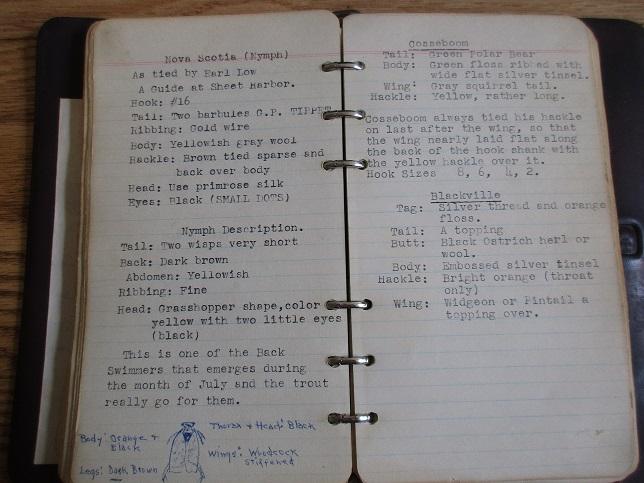 Nova Scotia (Nymph)
As tied by Earl Low
A Guide at Sheet Harbor.
Hook: #16
Tail: Two barbules G.P. TIPPET
Ribbing: Gold wire
Body: Yellowish gray wool
Hackle: Brown tied sparse and
back over body
Head: Use primrose silk
Eyes: Black (SMALL DOTS)
Nymph Description.
Tail: Two wisps very short
Back: Dark brown
Abdomen: Yellowish
Ribbing: Fine
Head: Grasshopper shape, color
yellow with two little eyes
(black)
This is one of the Back
Swimmers that emerges during
the month of July and the trout
really go for them.
Body: Orange &
Black
Legs: Dark Brown
Thorax & Head: Black
Wings: Woodcock
Stiffened
Cosseboom
Tail: Green Polar Bear
Body: Green floss ribbed with
wide flat silver tinsel.
Wing: Gray squirrel tail.
Hackle: Yellow, rather long.
Cosseboom always tied his hackle
on last after the wing, so that
the wing nearly laid flat along
the back of the hook shank with
the yellow hackle over it.
Hook Sizes 8, 6, 4, 2.
Blackville
Tag: Silver thread and orange
floss.
Tail: A topping
Butt: Black Ostrich herl or
wool.
Body: Embossed silver tinsel
Hackle: Bright orange (throat
only)
Wing: Widgeon or Pintail a
topping over.